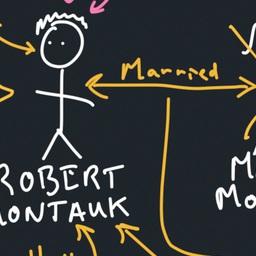 Married
ROBERT
MONTAUK